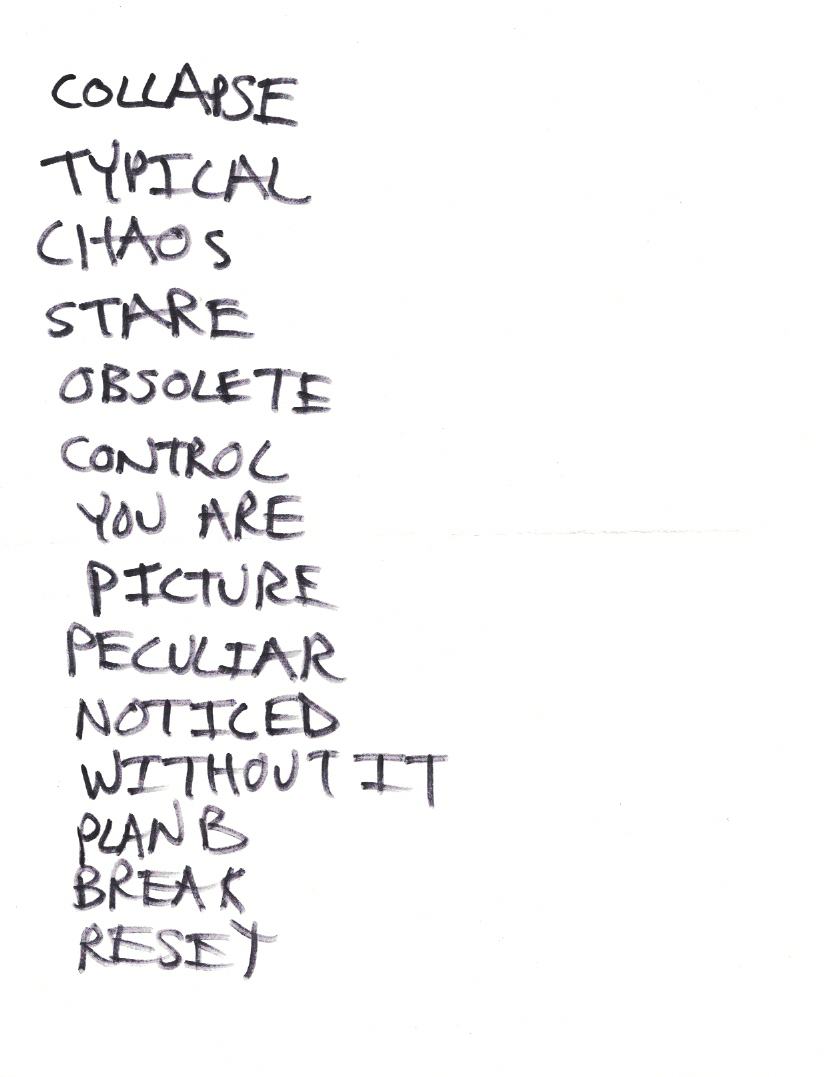 COLLAPSE
TYPICAL
CHAOS
STARE
OBSOLETE
CONTROL
YOU ARE
PICTURE
PECULIAR
NOTICED
WITHOUT IT
PLAN B
BREAK
RESEY